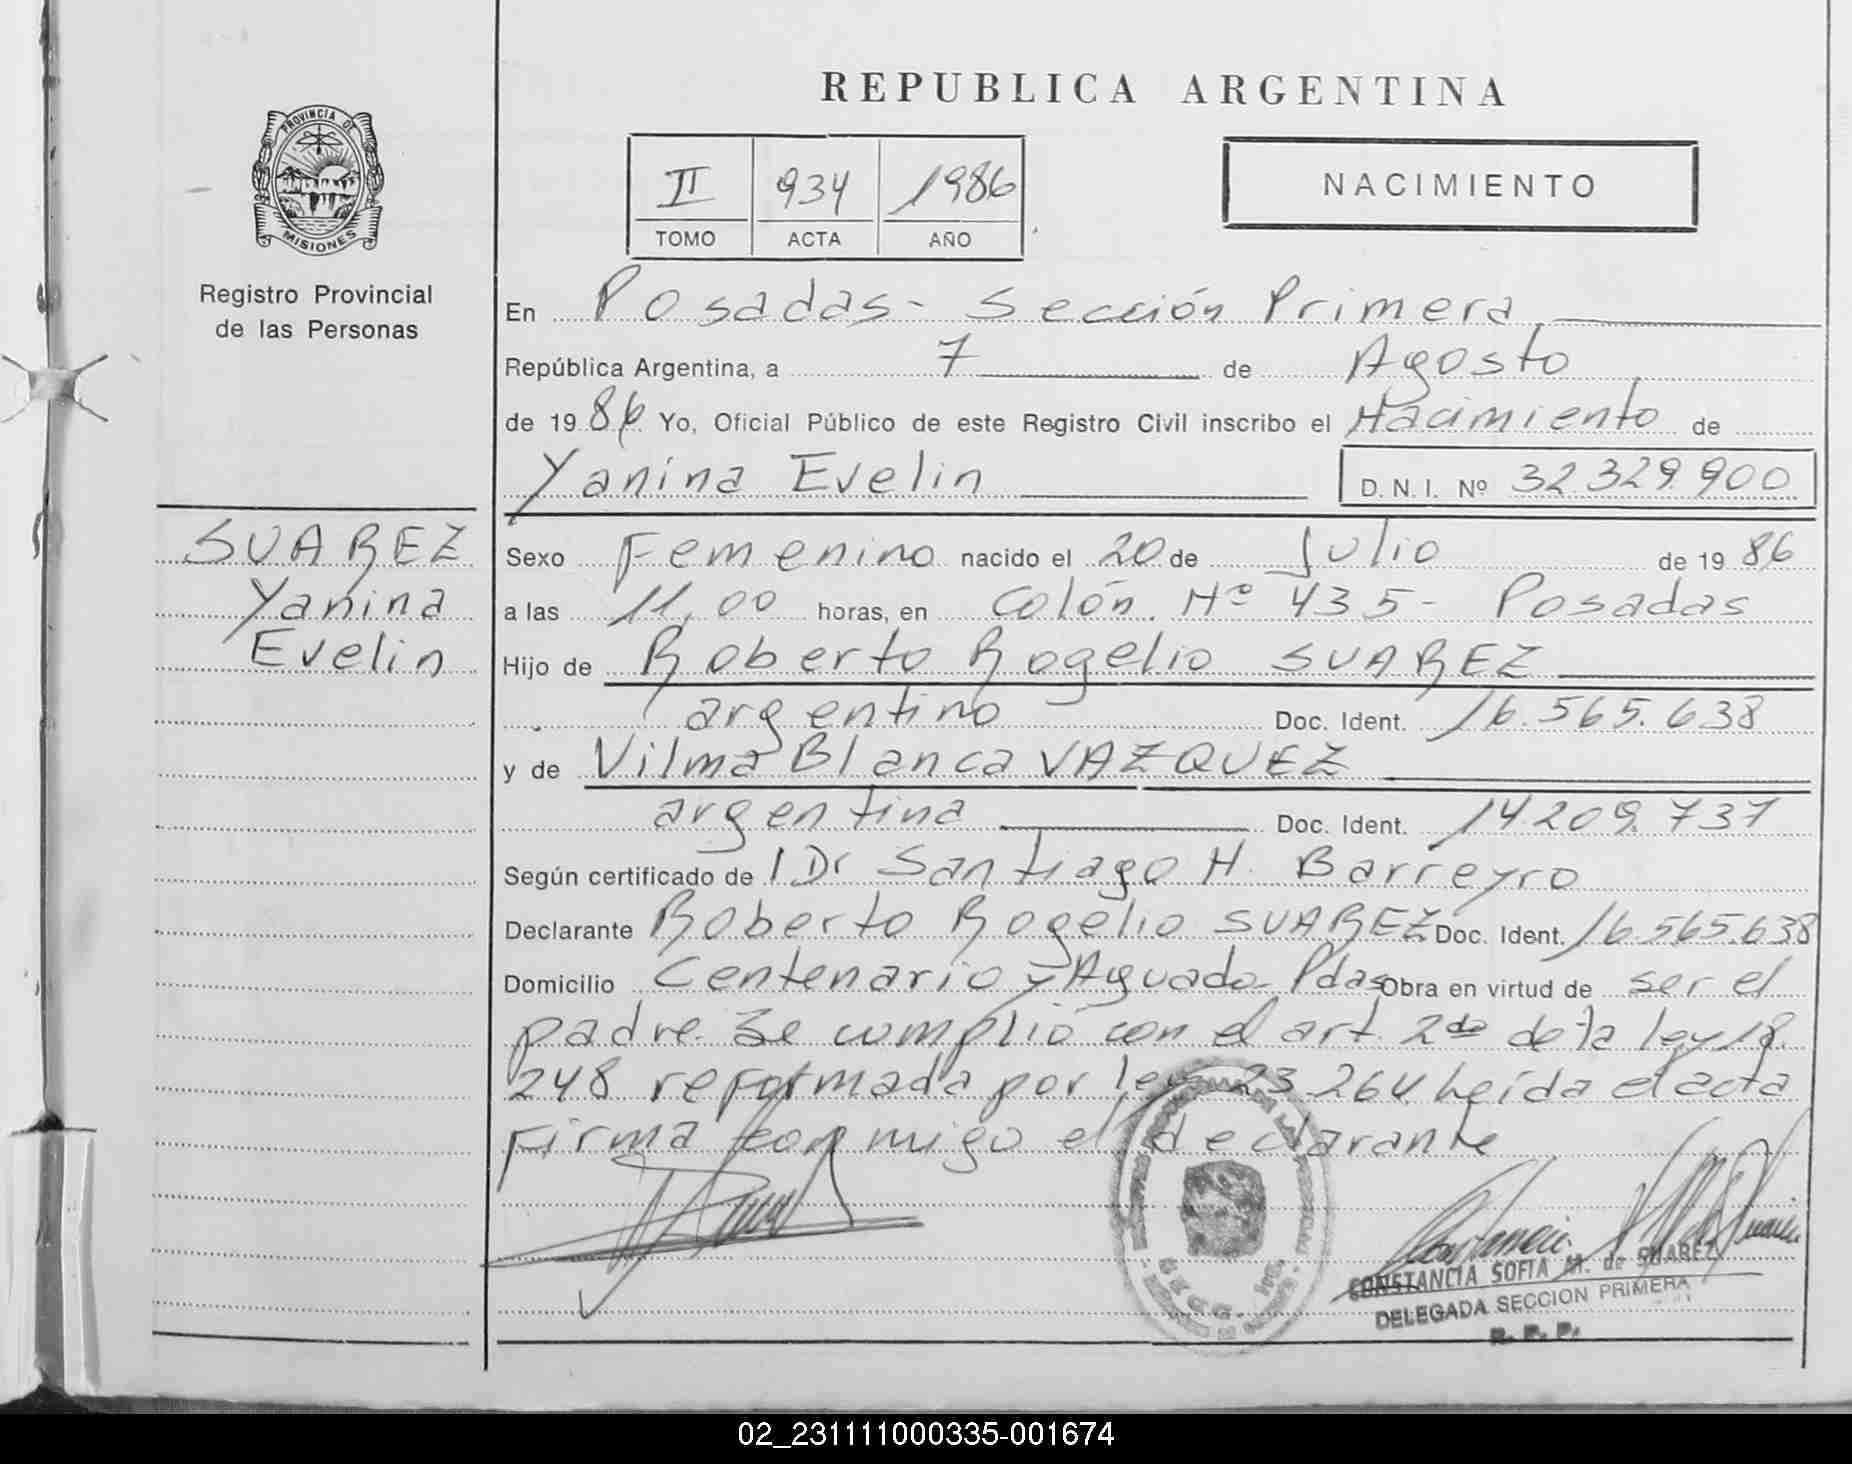 REPUBLICA ARGENTINA
PROVINCIA DE
MISIONES
Registro Provincial
de las Personas
II 934 1986
TOMO ACTA AÑO
NACIMIENTO
En Posadas - Sección Primera
República Argentina, a 7 de Agosto
de 1986 Yo, Oficial Público de este Registro Civil inscribo el Nacimiento de
Yanina Evelin D. N. I. Nº 32.329.900
SUAREZ
Yanina
Evelin
Sexo Femenino nacido el 20 de Julio de 1986
a las 11,00 horas, en Colón. Nº 435 - Posadas
Hijo de Roberto Rogelio SUAREZ
argentino Doc. Ident. 16.565.638
y de Vilma Blanca VAZQUEZ
argentina Doc. Ident. 14 209.737
Según certificado de l Dr Santiago H. Barreyro
Declarante Roberto Rogelio SUAREZ Doc. Ident. 16.565.638
Domicilio Centenario y Aguado - Pdas Obra en virtud de ser el
padre. Se cumplió con el art. 2do de la ley 18.
248 reformada por ley 23.264. Leída el acta
firma conmigo el declarante
CONSTANCIA SOFIA M. de SUAREZ
DELEGADA SECCION PRIMERA
R. P. P.
02_231111000335-001674